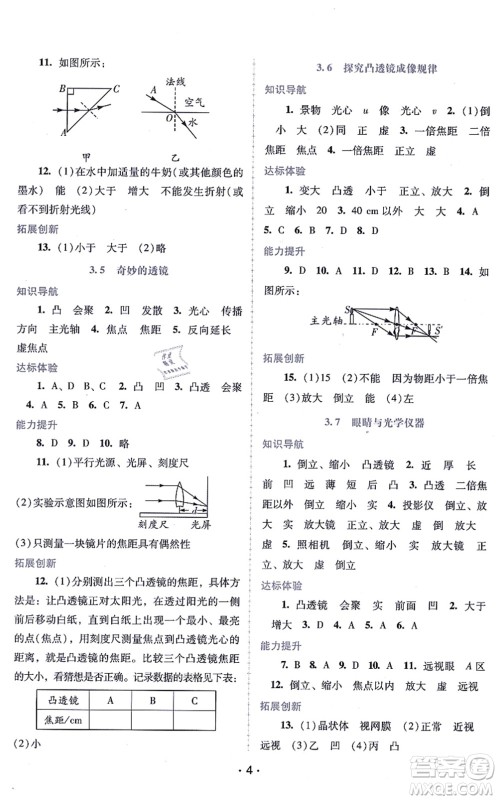 11. 如图所示;
B
C
A
甲
法线
空气
O
水
乙
12. (1)在水中加适量的牛奶(或其他颜色的
墨水) 能 (2)大于 增大 不能发生折射(或
看不到折射光线)
拓展创新
13. (1)小于 大于 (2)略
3.5 奇妙的透镜
知识导航
1. 凸 会聚 2. 凹 发散 3. 光心 传播
方向 主光轴 4. 焦点 焦距 5. 反向延长
虚焦点
达标体验
1. A、D B、C 2. 凸 凹 凹 3. 凸透 会聚
4. C 5. A 6. B 7. D
能力提升
8. D 9. D 10. A
11. (1)平行光源、光屏、刻度尺
(2)实验示意图如图所示:
d
刻度尺 光屏
(3)只测量一块镜片的焦距具有偶然性
拓展创新
12. (1)分别测出三个凸透镜的焦距,具体方法
是:让凸透镜正对太阳光,在凸透镜的一侧
前后移动白纸,直到白纸上出现最小、最亮的
光点(焦点),用刻度尺测量焦点到凸透镜光心
的距离即为焦距。比较三个凸透镜焦距
的大小,看猜想是否正确。记录数据的表格见下表:
凸透镜 A B C
焦距/cm
(2)小
3.6 探究凸透镜成像规律
知识导航
1. 景物 光心 u 像 光心 v 2. (1)倒
小 大 (2)同 正 虚 3. 一倍焦距 二
倍焦距 一倍焦距 正立 虚
达标体验
1. 变大 凸透 小于 正立、放大 2. 凸
倒立 缩小 20 3. 40 cm 倒立、放大 4. A
5. C 6. B 7. D 8. D
能力提升
9. D 10. D 11. A 12. C 13. A
14. 如图所示:
S
主光轴
F
O
F
S'
拓展创新
15. (1)15 (2)不能 因为物距小于一倍焦
距 (3)倒立 放大 能 (4)左
3.7 眼睛与光学仪器
知识导航
1. 倒立、缩小 晶状体 2. 近 厚 长
前 凹 远 薄 短 后 凸 3. 前 凸 二
倍焦距以外 倒立、缩小 实 4. 投影仪 倒立、放
大 实 放大镜 正立、放大 虚
5. 照相机 倒立 实 放大镜 正立
大 虚
达标体验
1. 凸透镜 会聚 实 前面 凹 2. 大于
增大 3. D 4. A 5. D 6. A
能力提升
7. B 8. B 9. A 10. A 11. 远视眼 A区
12. 倒立、缩小 放大镜 正立、放大
拓展创新
13. (1)晶状体 视网膜 (2)成虚像 凸
远视 (3)乙 凹 (4)丙 凸
· 4 ·
答案圈
MXQE.COM